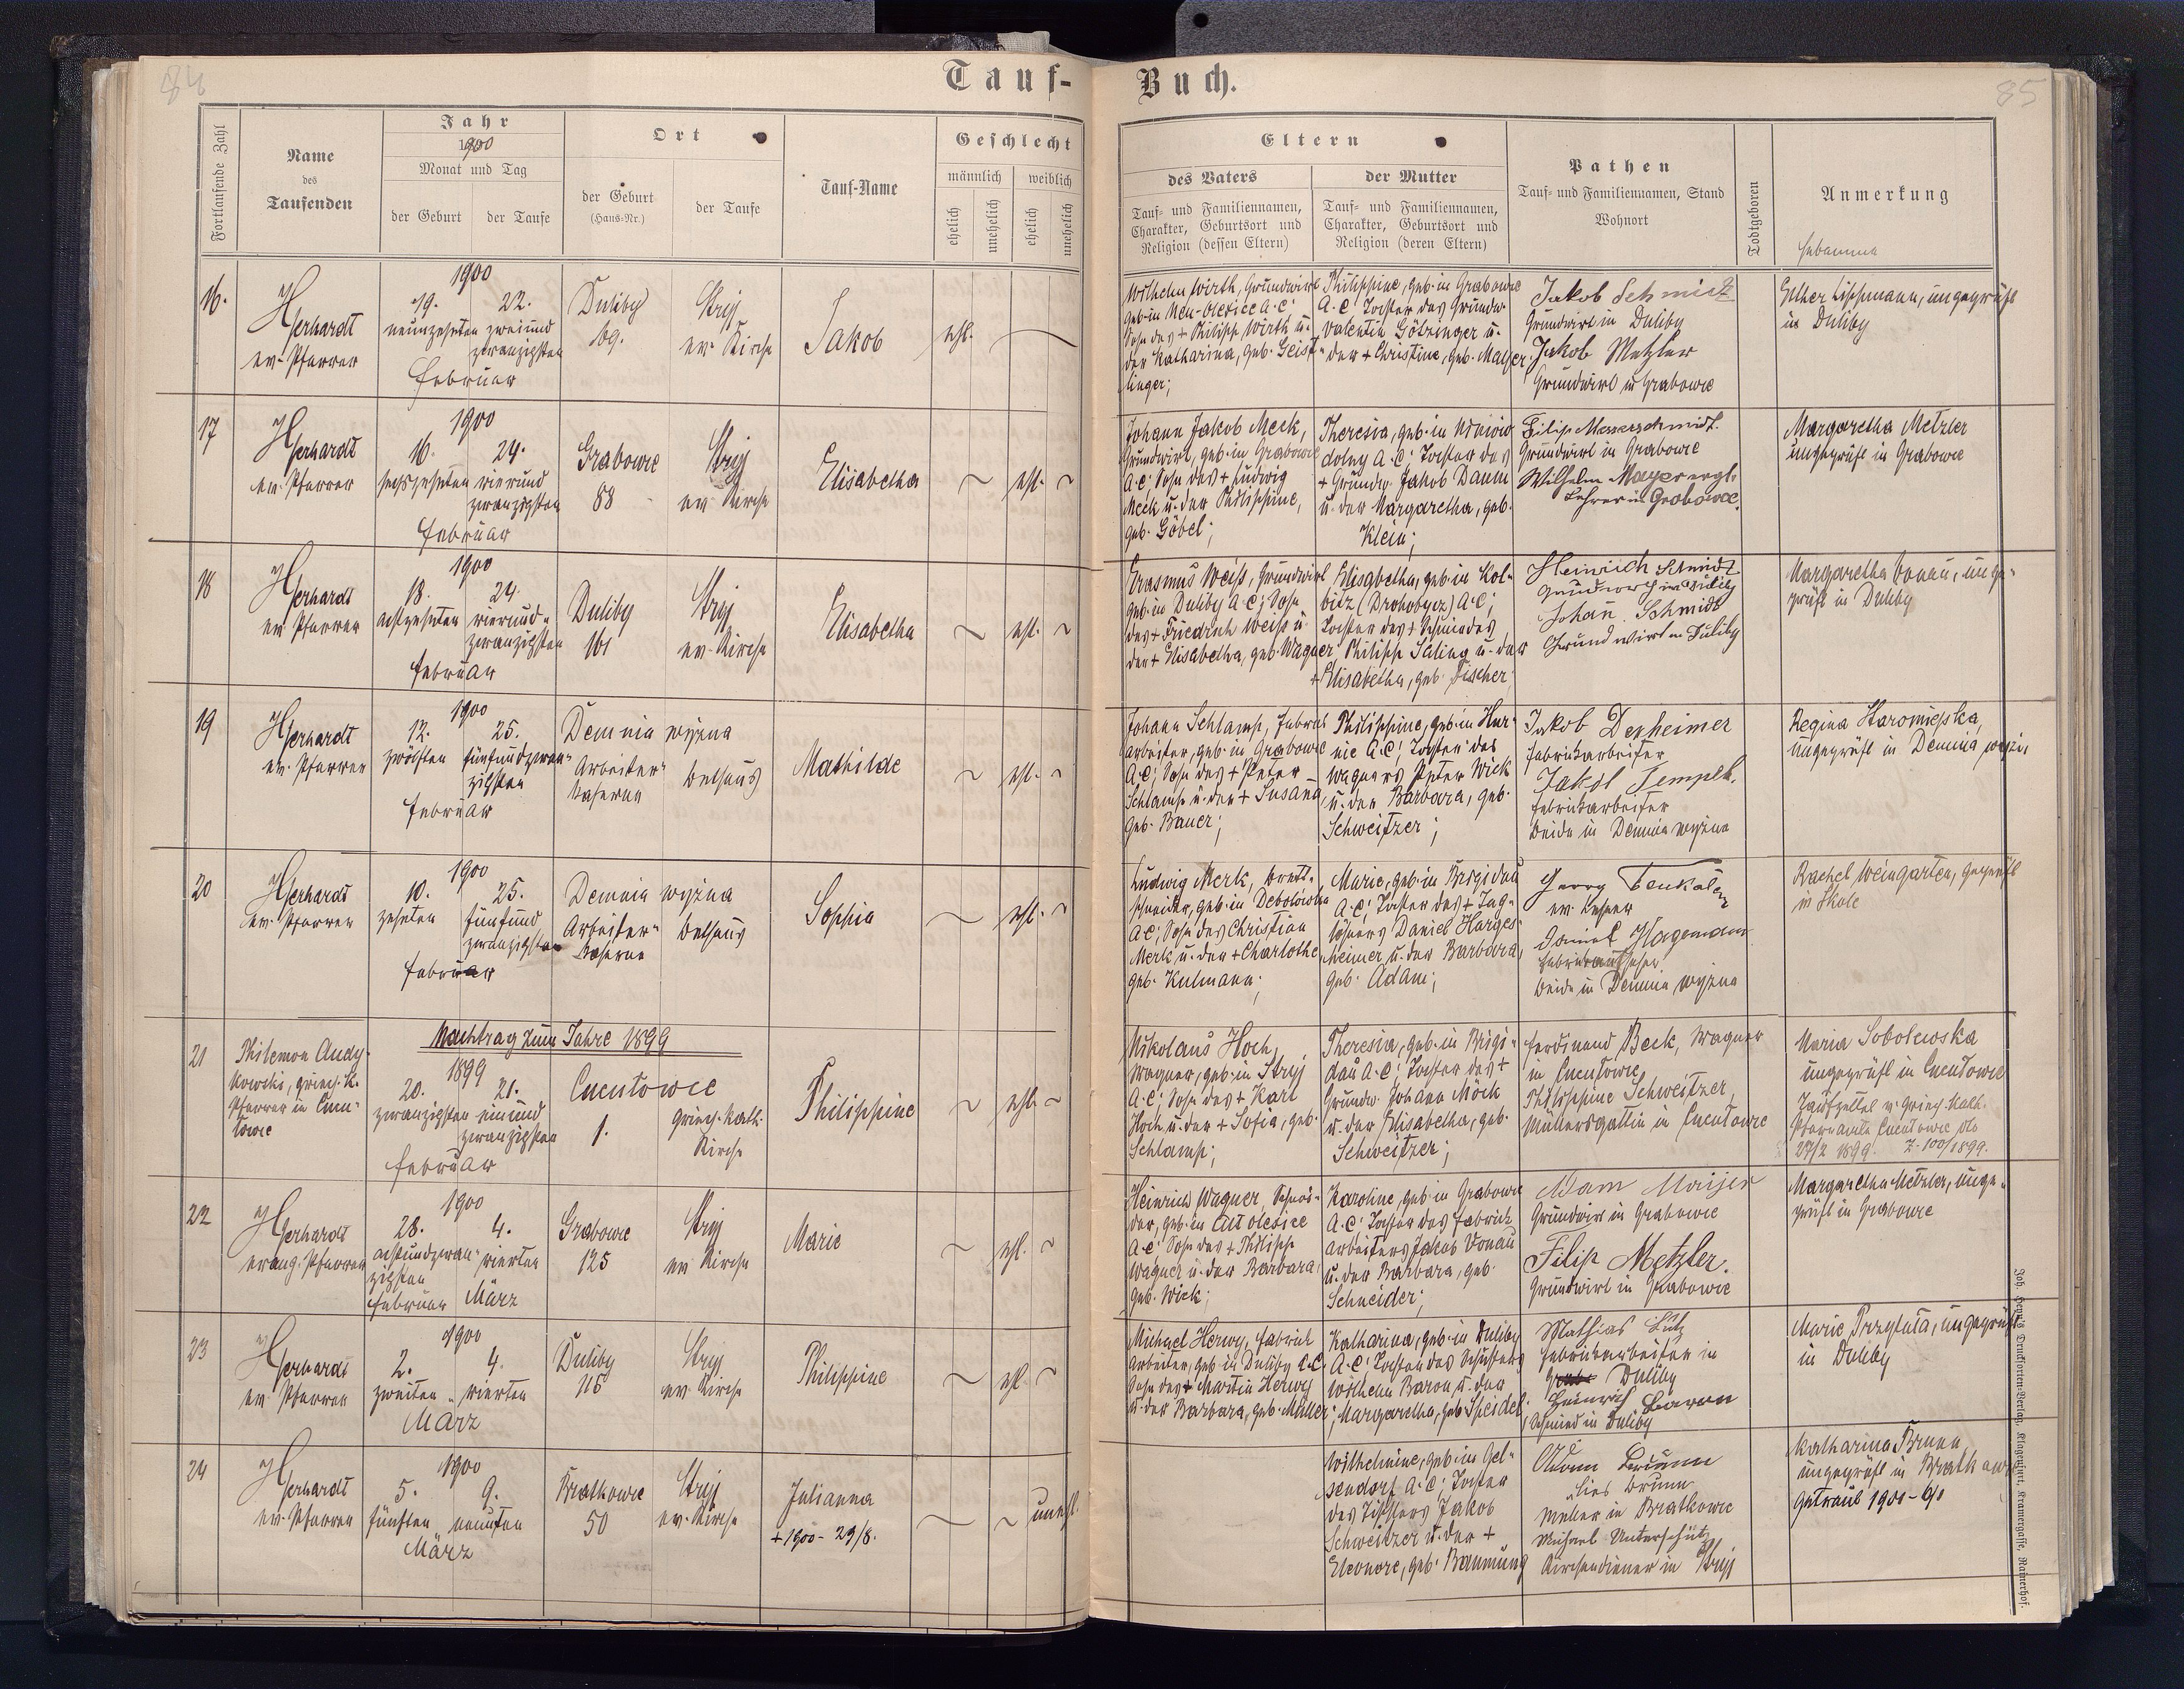 84
Tauf-
Buch.
85
Fortlaufende Zahl
Name
des
Taufenden
Jahr
1900
Monat und Tag
der Geburt
der Taufe
Ort
der Geburt
(Haus-Nr.)
der Taufe
Tauf-Name
Geschlecht
männlich
weiblich
ehelich
unehelich
ehelich
unehelich
Eltern
des Vaters
Tauf- und Familiennamen,
Charakter, Geburtsort und
Religion (dessen Eltern)
der Mutter
Tauf- und Familiennamen,
Charakter, Geburtsort und
Religion (deren Eltern)
Pathen
Tauf- und Familiennamen, Stand
Wohnort
Todtgeboren
Anmerkung
Hebamme
16.
Gerhardt
ev. Pfarrer
1900
19. 22.
neunzehnten zweiund
zwanzigsten
Februar
Duliby
109.
Stryj
ev. Kirche
Jakob
ehl.
Wilhelm Wirth, Grundwirt
geb. in Neu-Olexice A.C.
Sohn des + Philipp Wirth u.
der Katharina, geb. Geist-
linger;
Philippine, geb. in Grabowce
A.C. Tochter des Grundw.
Valentin Götzinger u.
der + Christine, geb. Mayer
Jakob Schmidt
Grundwirt in Duliby
Jakob Metzler
Grundwirt in Grabowce
Esther Lippmann, ungeprüft
in Duliby
17
Gerhardt
ev. Pfarrer
1900
16. 24.
sechszehnten vierund
zwanzigsten
Februar
Grabowce
88
Stryj
ev. Kirche
Elisabetha
ehl.
Johann Jakob Meck,
Grundwirt, geb. in Grabowce
A.C.; Sohn des + Ludwig
Meck u. der Philippine,
geb. Göbel;
Theresia, geb. in
dolny A.C.; Tochter des
+ Grundw. Jakob Daum
u. der Margaretha, geb.
Klein;
Filip Messerschmidt.
Grundwirt in Grabowce
Wilhelm Mayer evgl.
Lehrer in Grabowce.
Margaretha Metzler
ungeprüft in Grabowce
18
Gerhardt
ev. Pfarrer
1900
18. 24.
achtzehnten vierund-
zwanzigsten
Februar
Duliby
161
Stryj
ev. Kirche
Elisabetha
ehl.
Erasmus Weiß, Grundwirt
geb. in Duliby A.C.; Sohn
des + Friedrich Weiß u.
der + Elisabetha, geb. Wagner
Elisabetha, geb. in Kol-
bitz (Drohobycz) A.C.;
Tochter des + Schmiedes
Philipp Saling u. der
+ Elisabetha, geb. Fischer;
Heinrich Schmidt
Grundwirt in Duliby
Johan Schmidt
Grundwirt in Duliby
Margaretha Vonau, unge-
prüft in Duliby
19
Gerhardt
ev. Pfarrer
1900
12. 25.
zwölften fünfundzwan-
zigsten
Februar
Demnia wyzna
Arbeiter-
kaserne
Bethaus
Mathilde
ehl.
Johann Schlamp, Fabriks
arbeiter, geb. in Grabowce
A.C.; Sohn des + Peter
Schlamp u. der + Susana,
geb. Bauer;
Philippine, geb. in Hur-
nie A.C.; Tochter des
Wagners Peter Wick
u. der Barbara, geb.
Schweitzer;
Jakob Dexheimer
Fabriksarbeiter
Jakob Tempel.
Fabriksarbeiter
beide in Demnia wyzna
Regina Staromiejska,
ungeprüft in Demnia
20
Gerhardt
ev. Pfarrer
1900
10. 25.
zehnten fünfund
zwanzigsten
Februar
Demnia wyzna
Arbeiter-
kaserne
Bethaus
Sophia
ehl.
Ludwig Merk, Brett-
schneider, geb. in Debolówka
A.C.; Sohn des Christian
Merk u. der + Charlotte,
geb. Kulmann;
Marie, geb. in Brigidau
A.C.; Tochter des + Tag-
löhners Daniel Harges-
heimer u. der Barbara,
geb. Adam;
Georg
ev. Lehrer
Daniel Hagemann
Fabriksaufseher
beide in Demnia wyzna
Rachel Weingarten, geprüft
in Skole
Nachtrag zum Jahre 1899
21
Philemon Andy-
kowski, griech. k.
Pfarrer in Cucu-
lowce
1899
20. 21.
zwanzigsten einund
zwanzigsten
Februar
Cuculowce
1.
Griech. kath.
Kirche
Philippine
ehl.
Nikolaus Hoch,
Wagner, geb. in Stryj
A.C.; Sohn des + Karl
Hoch u. der + Sofia, geb.
Schlamp;
Theresia, geb. in Brigi-
dau A.C.; Tochter des +
Grundw. Johann Möck
u. der Elisabetha, geb.
Schweitzer;
Ferdinand Beck, Wagner
in Cuculowce,
Philippine Schweitzer,
Müllersgattin in Cuculowce
Maria Sobolewska
ungeprüft in Cuculowce
Taufzettel v. griech. kath.
Pfarramte Cuculowce dto
27/2 1899. Z. 100/1899.
22
Gerhardt
evang. Pfarrer
1900
28. 4.
achtundzwan- vierten
zigsten
Februar März
Grabowce
125
Stryj
ev. Kirche
Marie
ehl.
Heinrich Wagner,
geb. in Alt Olesice
A.C. Sohn des + Philipp
Wagner u. der Barbara,
geb. Wick;
Karoline, geb. in Grabowce
A.C. Tochter des Fabriks
arbeiters Jakob Vonau
u. der Barbara, geb.
Schneider;
Adam Maijer
Grundwirt in Grabowce
Filip Metzler.
Grundwirt in Grabowce
Margaretha Metzler, unge-
prüft in Grabowce
23
Gerhardt
ev. Pfarrer
1900
2. 4.
zweiten vierten
März
Duliby
116
Stryj
ev. Kirche
Philippine
ehl.
Michael Herwy, Fabriks
arbeiter, geb. in Duliby A.C.
Sohn des + Martin Herwy
u. der Barbara, geb. Müller;
Katharina, geb. in Duliby
A.C. Tochter des Schusters
Wilhelm Baron u. der
Margaretha, geb. Speidel;
Mathias Lutz
Fabriksarbeiter in
Duliby
Heinrich Baron
Schmied in Duliby
Marie Przytuła, ungeprüft
in Duliby
24
Gerhardt
ev. Pfarrer
1900
5. 9.
fünften neunten
März
Bratkowce
50
Stryj
ev. Kirche
Julianna
+ 1900 - 29/8.
unehl.
Wilhelmine, geb. in Gel-
sendorf A.C.; Tochter
des Tischlers Jakob
Schweitzer u. der +
Eleonore, geb. Baumung
Adam Brunn
Brunn
Müller in Bratkowce
Michael Unterschütz
Kirchendiener in Stryj
Katharina Brunn
ungeprüft in Bratkowce
Getraut 1900 - 6/1
Joh. Druckforten-Verlag, Klagenfurt, Kramergasse, Rainerhof.